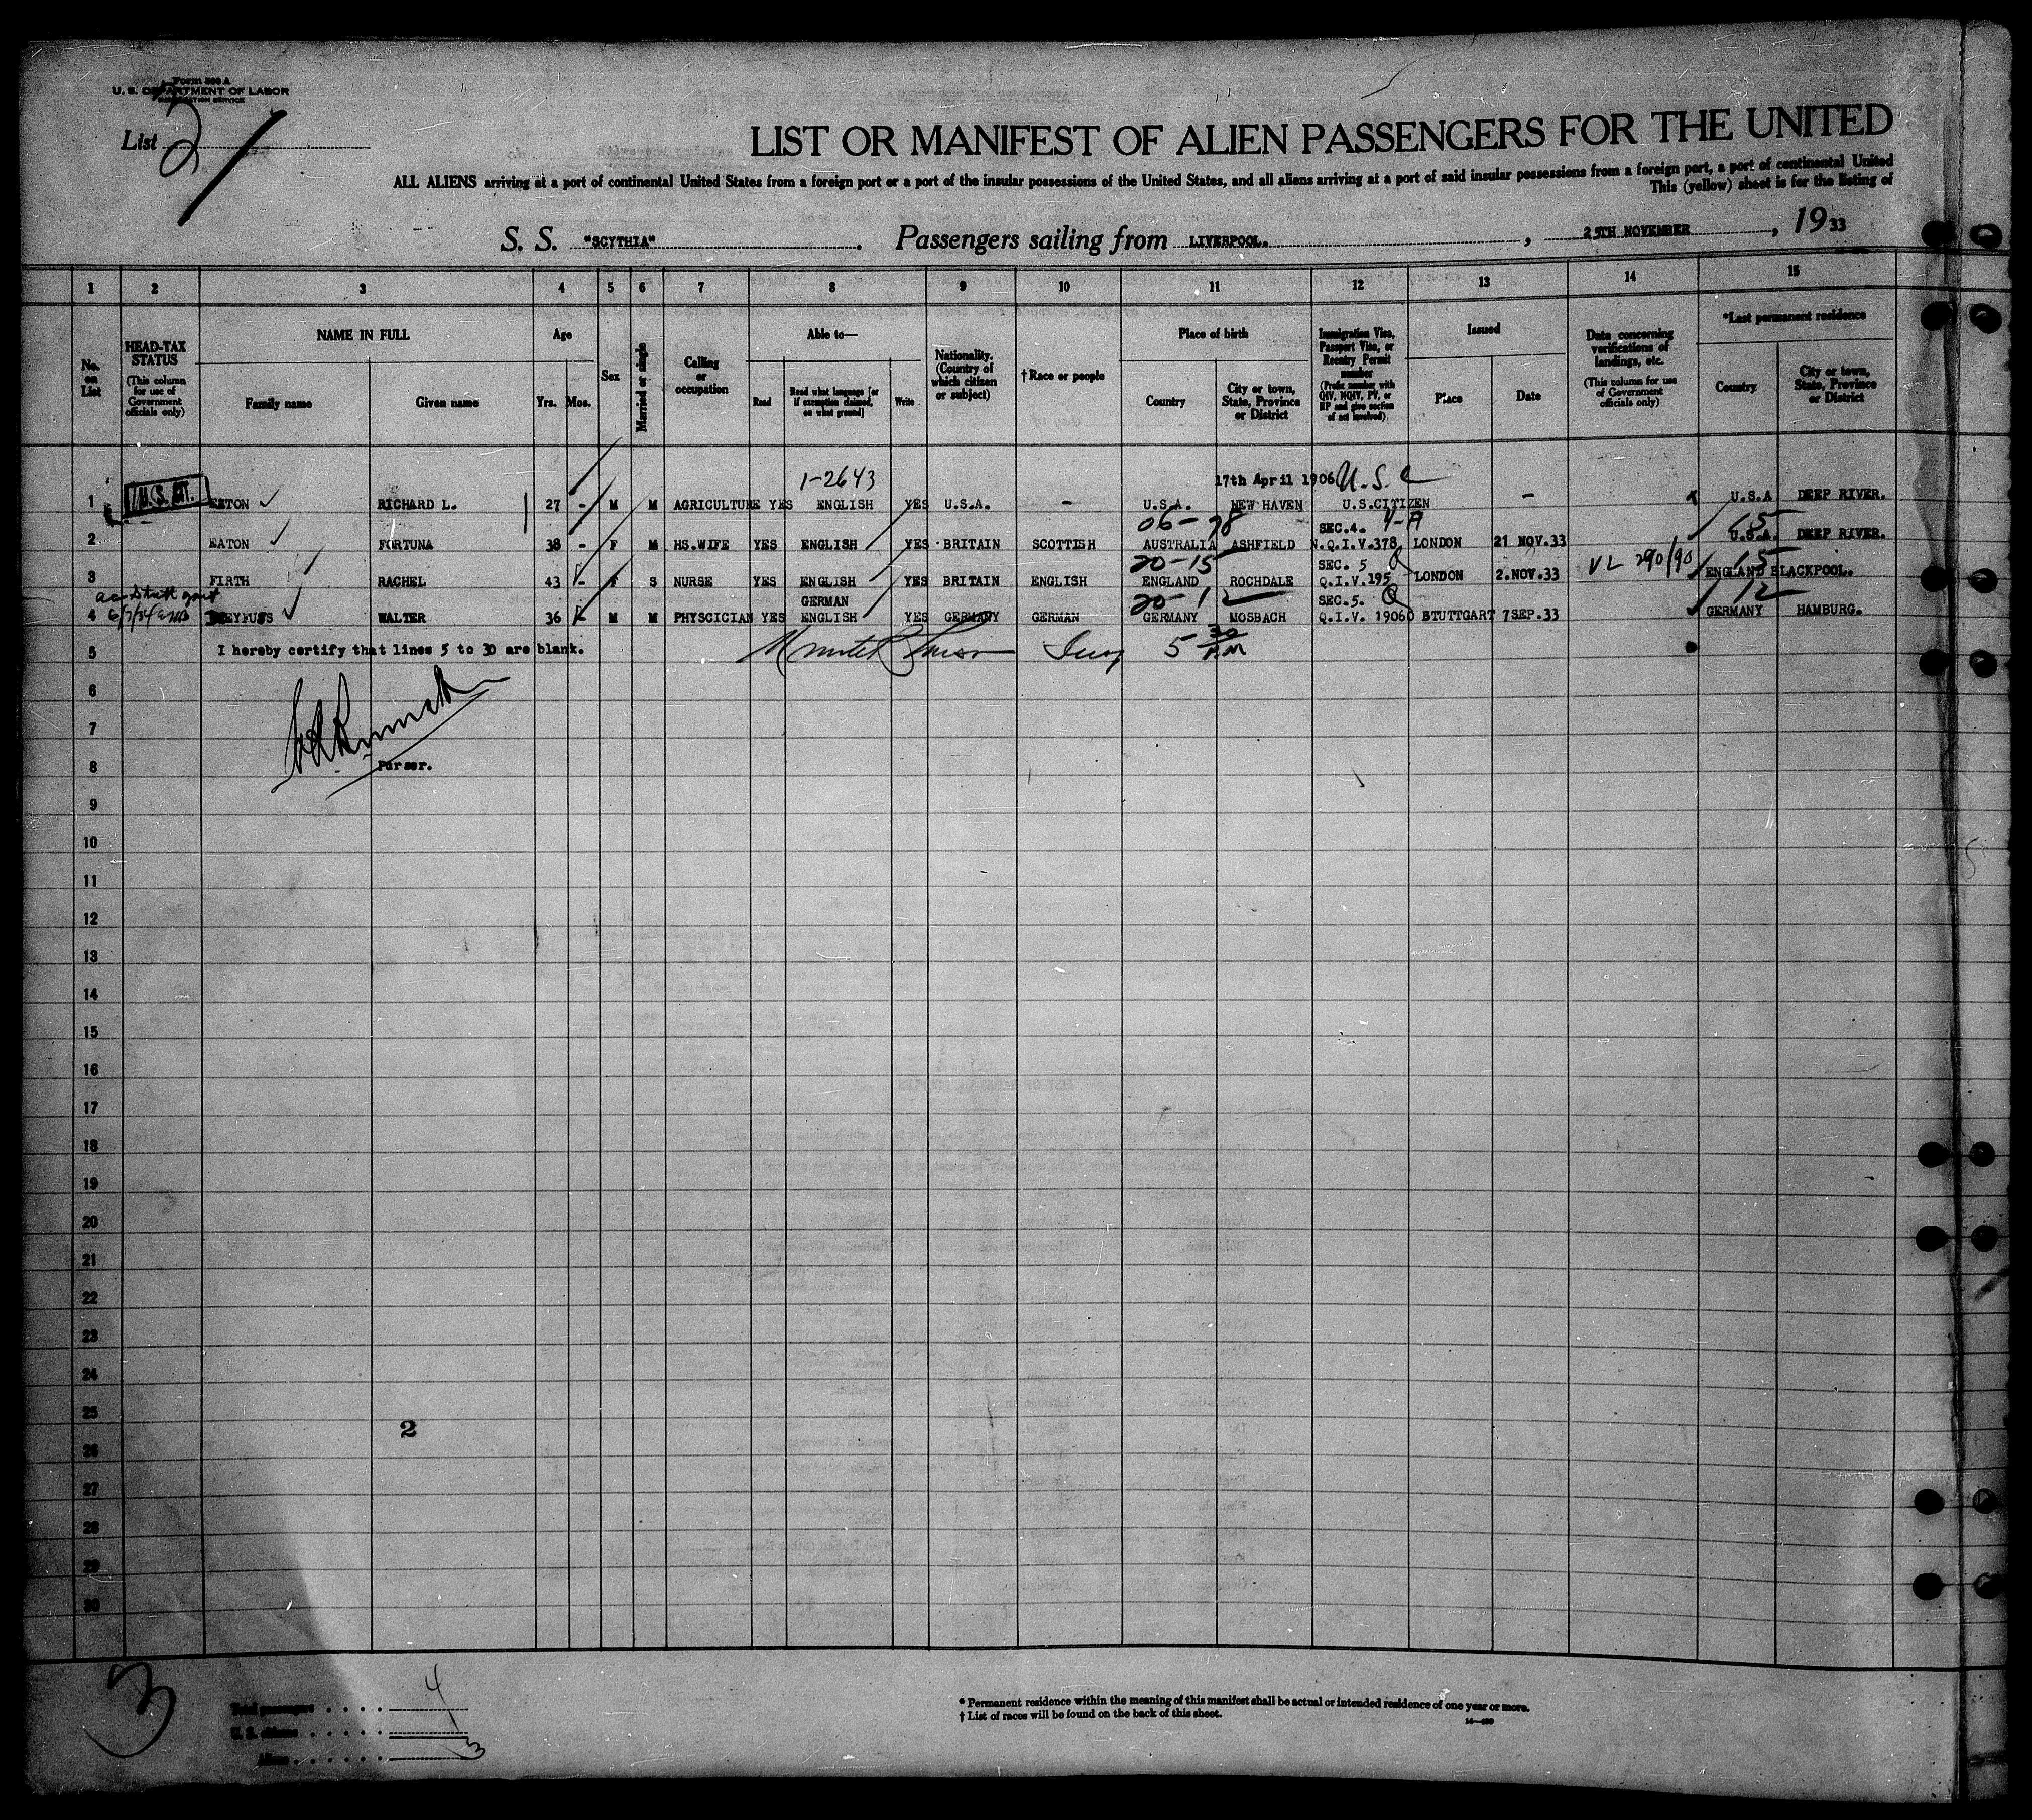 Form 500 A
U. S. DEPARTMENT OF LABOR
IMMIGRATION SERVICE
List 2
LIST OR MANIFEST OF ALIEN PASSENGERS FOR THE UNITED
ALL ALIENS arriving at a port of continental United States from a foreign port or a port of the insular possessions of the United States, and all aliens arriving at a port of said insular possessions from a foreign port, a port of continental United
This (yellow) sheet is for the listing of
S. S. "SCYTHIA" . Passengers sailing from LIVERPOOL. , 25TH NOVEMBER , 19 33
1 2 3 4 5 6 7 8 9 10 11 12 13 14 15
No. on List
HEAD-TAX STATUS (This column for use of Government officials only)
NAME IN FULL
Family name Given name
Age
Yrs. Mos.
Sex
Married or single
Calling or occupation
Able to—
Read Read what language [or if exemption claimed, on what ground] Write
Nationality. (Country of which citizen or subject)
†Race or people
Place of birth
Country City or town, State, Province or District
Immigration Visa, Passport Visa, or Reentry Permit number (Prefix number with QIV, NQIV, PV, or RP and give section of act involved)
Issued
Place Date
Data concerning verifications of landings, etc. (This column for use of Government officials only)
*Last permanent residence
Country City or town, State, Province or District
1-2643 17th April 1906 U.S.C
1 U.S. CIT. EATON RICHARD L. 27 - M M AGRICULTURE YES ENGLISH YES U.S.A. - U.S.A. NEW HAVEN U.S.CITIZEN - U.S.A DEEP RIVER.
06-98 SEC.4. 4-A
2 EATON FORTUNA 38 - F M HS.WIFE YES ENGLISH YES BRITAIN SCOTTISH AUSTRALIA ASHFIELD N.Q.I.V.378 LONDON 21 NOV.33 U.S.A. DEEP RIVER.
20-15 SEC. 5 Q VL 290/90 15
3 FIRTH RACHEL 43 - F S NURSE YES ENGLISH YES BRITAIN ENGLISH ENGLAND ROCHDALE Q.I.V.195 LONDON 2.NOV.33 ENGLAND BLACKPOOL.
GERMAN 20-1 SEC.5. Q 12
4 DREYFUSS WALTER 36 - M M PHYSCICIAN YES ENGLISH YES GERMANY GERMAN GERMANY MOSBACH Q.I.V. 1906 STUTTGART 7SEP.33 GERMANY HAMBURG.
5 I hereby certify that lines 5 to 30 are blank. 5 30 P.M
6
7
8 Purser.
9
10
11
12
13
14
15
16
17
18
19
20
21
22
23
24
25 2
26
27
28
29
30
3
Total passengers . . . . 4
U. S. citizens . . . . 1
Aliens . . . . . . 3
* Permanent residence within the meaning of this manifest shall be actual or intended residence of one year or more.
† List of races will be found on the back of this sheet.